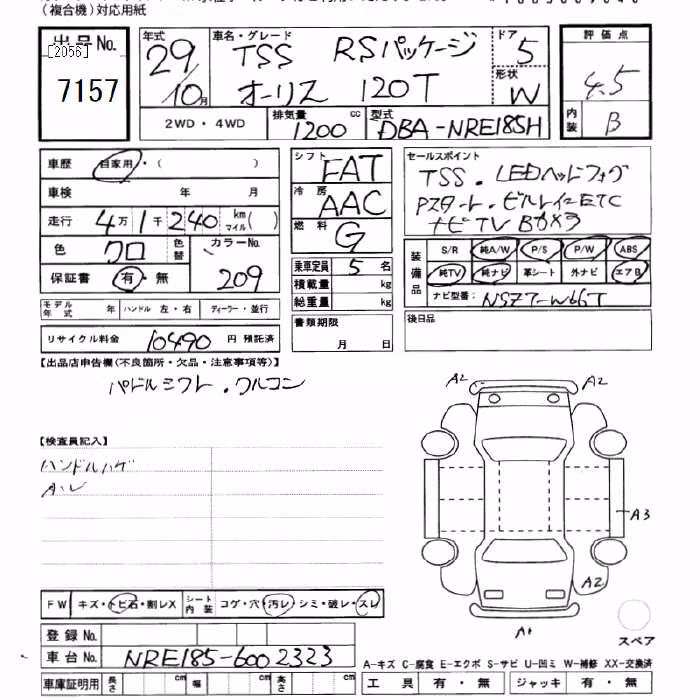 (複合機)対応用紙
出品No.
[2056]
7157
年式 29 10月
車名・グレード TSS RSパッケージ
オーリス 120T
ドア 5
形状 W
評価点 4.5
内装 B
2WD・4WD
排気量 1200 cc
型式 DBA-NRE185H
車歴 自家用・( )
車検 年 月
走行 4万1千240 km マイル( )
色 クロ 色替 カラーNo. 209
保証書 有・無
モデル年式 年 ハンドル 左・右 ディーラー・並行
リサイクル料金 10490 円 預託済
シフト FAT
冷房 AAC
燃料 G
乗車定員 5 名
積載量 kg
総重量 kg
書類期限
月 日
セールスポイント
TSS・LEDヘッドフォグ
Pスタート・ビルトインETC
ナビTV Bカメラ
装備品
S/R 純A/W P/S P/W ABS
純TV 純ナビ 革シート 外ナビ エアB
ナビ型番: NSZT-W66T
後日品
【出品店申告欄(不良箇所・欠品・注意事項等)】
パドルシフト・ウィルコン
【検査員記入】
ハンドルハゲ
A・レ
A2 A2
A3
A2
A1
スペア
FW キズ・トビ石・割レX シート内装 コゲ・穴・汚レ・シミ・破レ・スレ
登録No.
車台No. NRE185-6002323
A-キズ C-腐食 E-エクボ S-サビ U-凹ミ W-補修 XX-交換済
車庫証明用 長さ cm 幅 cm 高さ cm
工具 有・無 ジャッキ 有・無